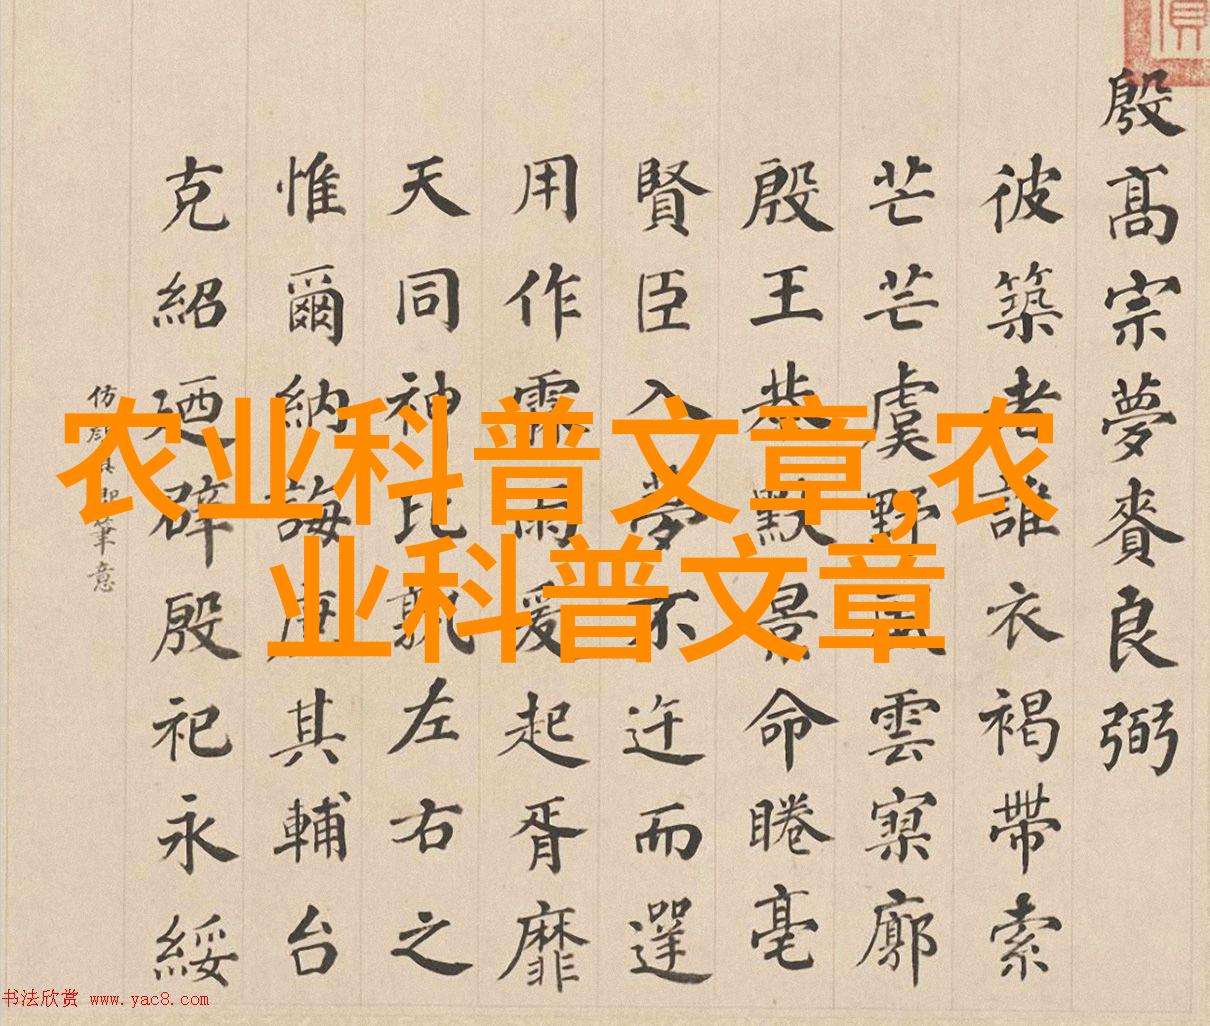 殷髙宗夢賚良弼
彼築者誰衣褐帶索
芒芒虞野雲寥廓
殷王恭默景命睠亳
賢臣入夢不迕而遻
用作霖雨爰起胥靡
天同神比孰左右之
惟爾納誨庸其輔台
克紹廼辟殷祀永綏
仿顏真卿筆意
农业科普文章,农
业科普文章
书法欣赏 www.yac8.com